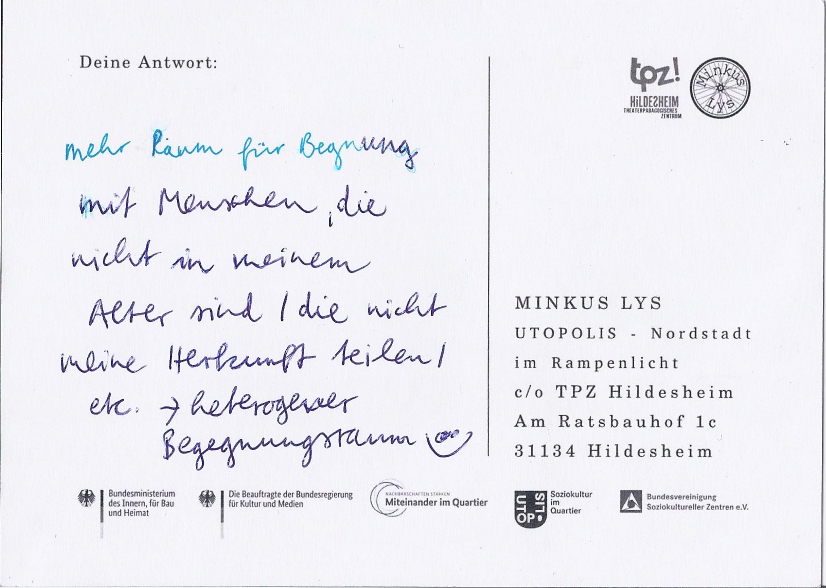 Deine Antwort:
mehr Raum für Begnung
mit Menschen, die
nicht in meinem
Alter sind / die nicht
meine Herkunft teilen /
etc. → heterogener
Begegnungsraum
tpz!
HILDESHEIM
THEATERPÄDAGOGISCHES
ZENTRUM
Minkus
Lys
MINKUS LYS
UTOPOLIS - Nordstadt
im Rampenlicht
c/o TPZ Hildesheim
Am Ratsbauhof 1c
31134 Hildesheim
Bundesministerium
des Innern, für Bau
und Heimat
Die Beauftragte der Bundesregierung
für Kultur und Medien
NACHBARSCHAFTEN STÄRKEN
Miteinander im Quartier
UTOPOLIS
Soziokultur
im
Quartier
Bundesvereinigung
Soziokultureller Zentren e.V.